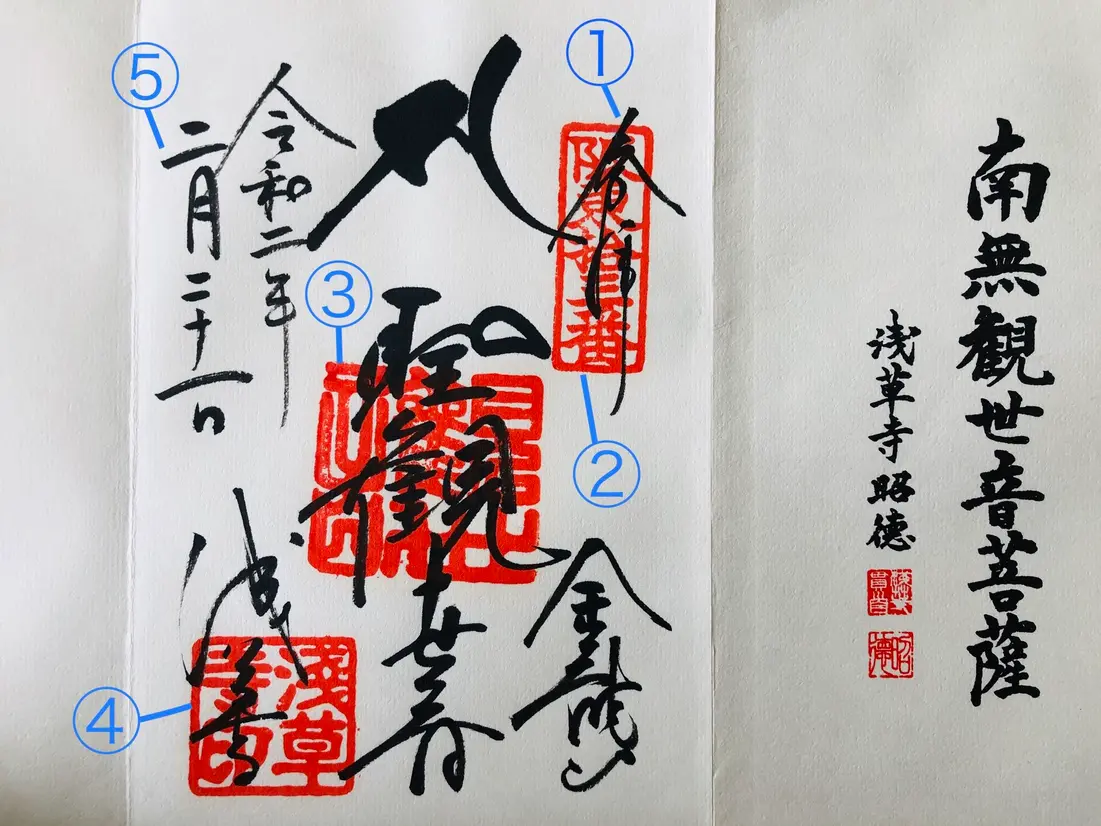 南無観世音菩薩
浅草寺昭德
①
奉拝
坂東拾三番
②
聖観世音
③
金龍山
浅草寺
浅草寺印
④
令和二年
⑤
二月二十一日